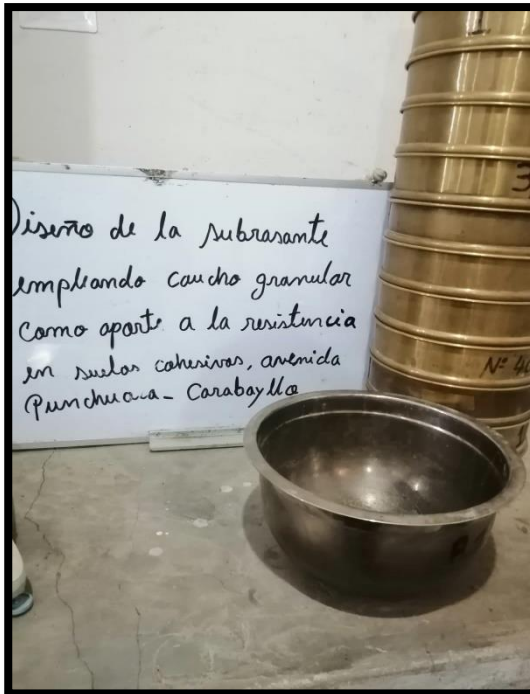 Diseño de la subrasante
empleando caucho granular
como aporte a la resistencia
en suelos cohesivos, avenida
Punchauca - Carabayllo
1
3
Nº 40